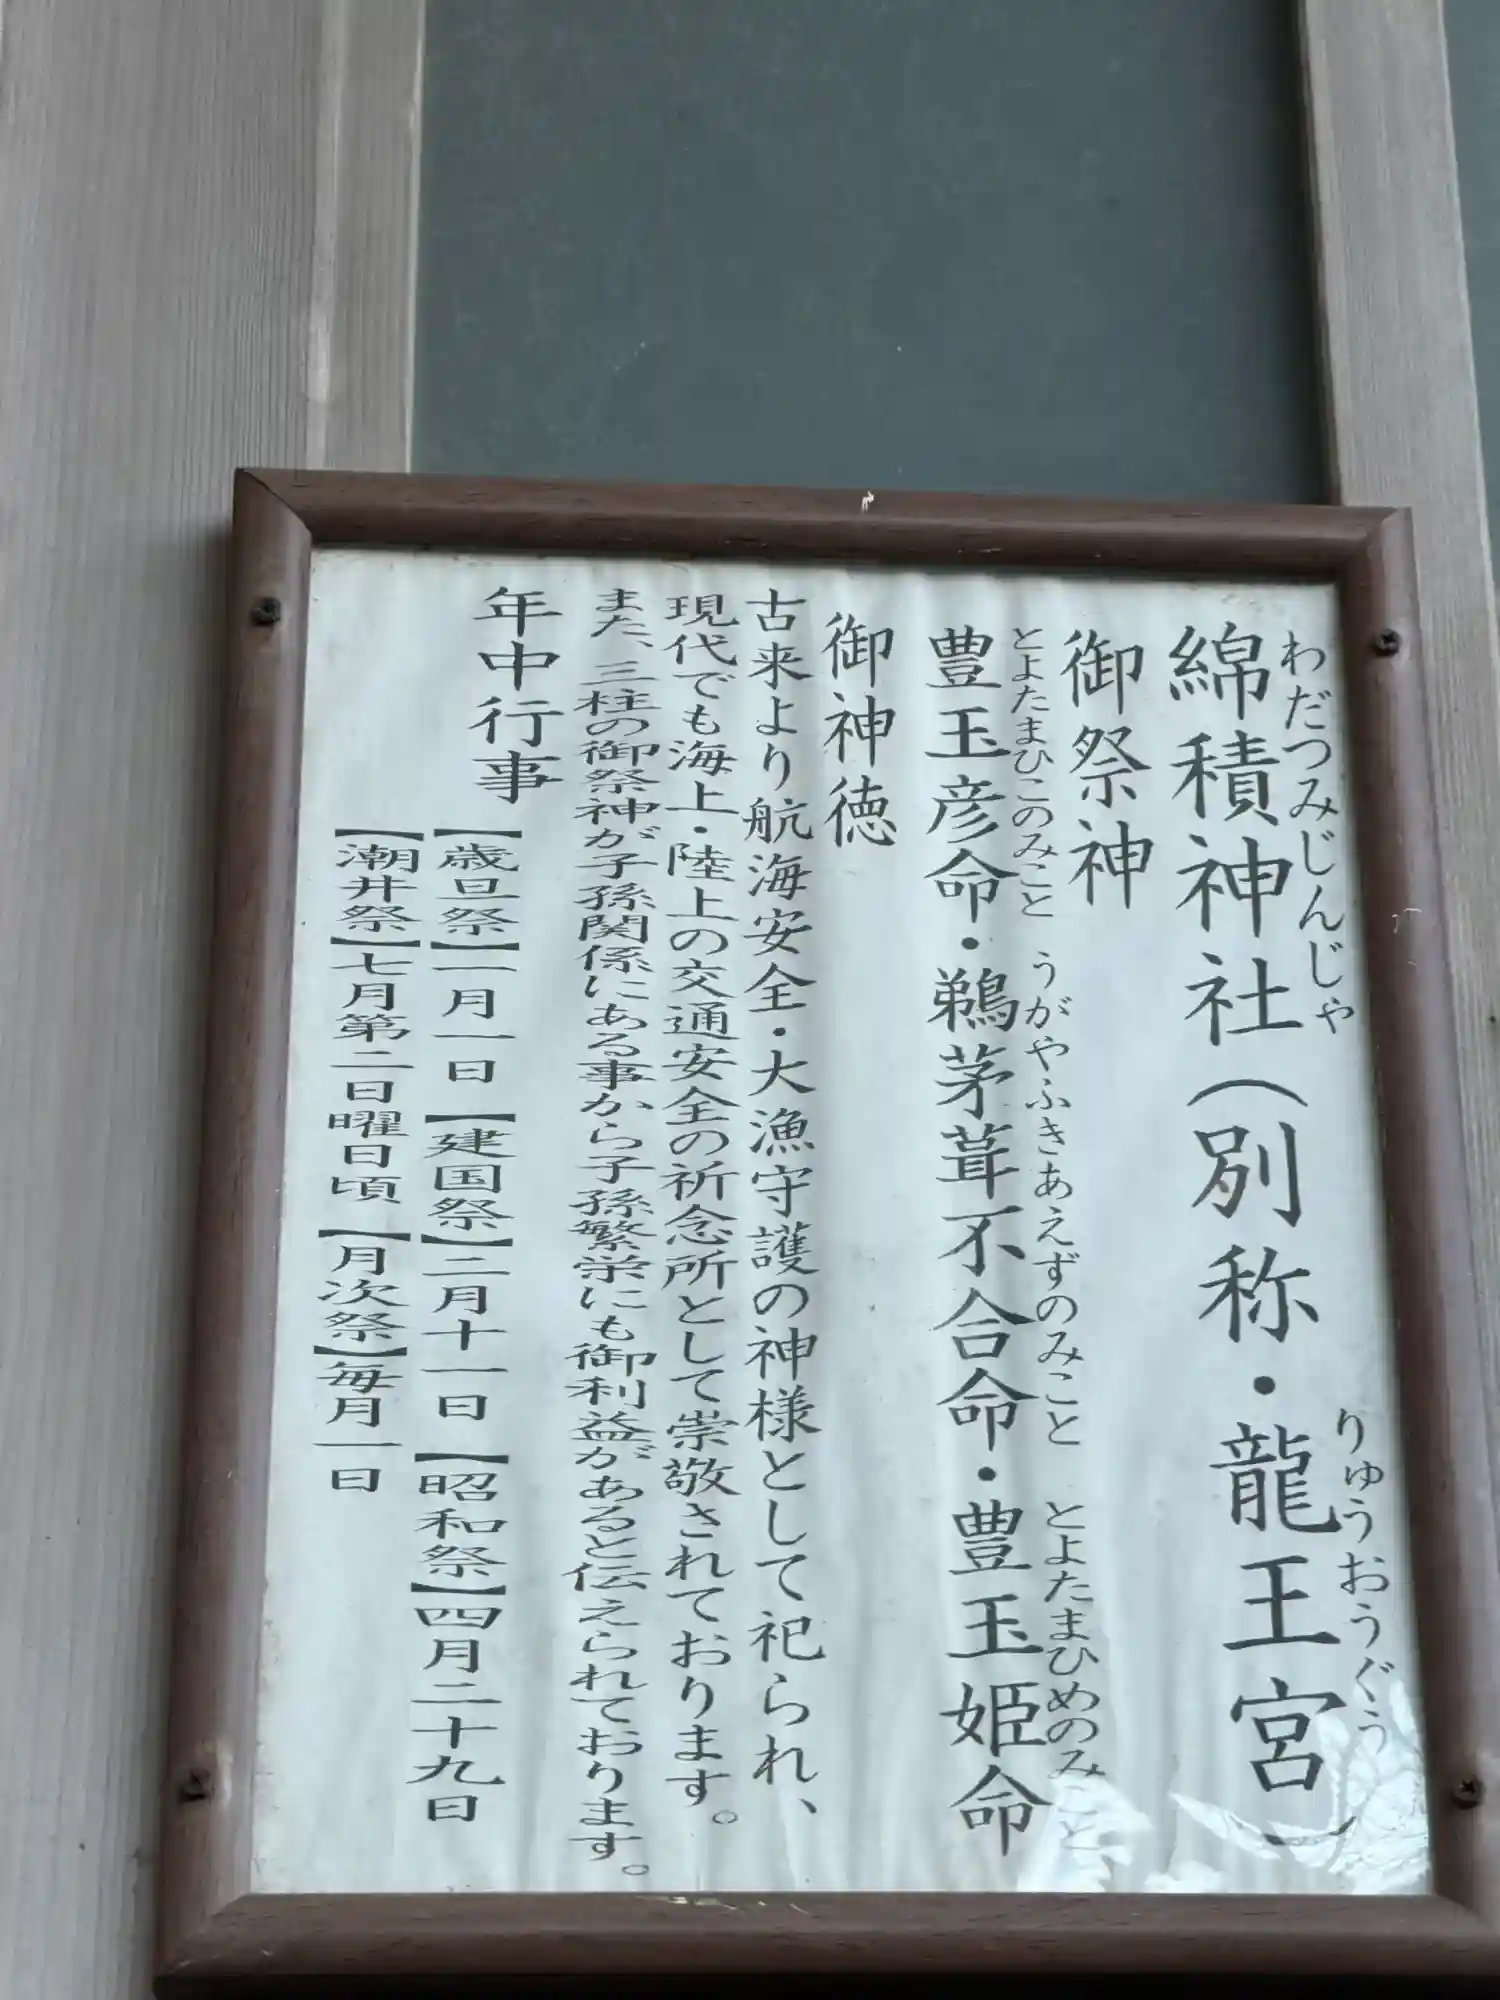 わだつみじんじゃ りゅうおうぐう
綿積神社（別称・龍王宮）
御祭神
とよたまひこのみこと うがやふきあえずのみこと とよたまひめのみこと
豊玉彦命・鵜茅葺不合命・豊玉姫命
御神徳
古来より航海安全・大漁守護の神様として祀られ、
現代でも海上・陸上の交通安全の祈念所として崇敬されております。
また、三柱の御祭神が子孫関係にある事から子孫繁栄にも御利益があると伝えられております。
年中行事
【歳旦祭】一月一日 【建国祭】二月十一日 【昭和祭】四月二十九日
【潮井祭】七月第二日曜日頃 【月次祭】毎月一日